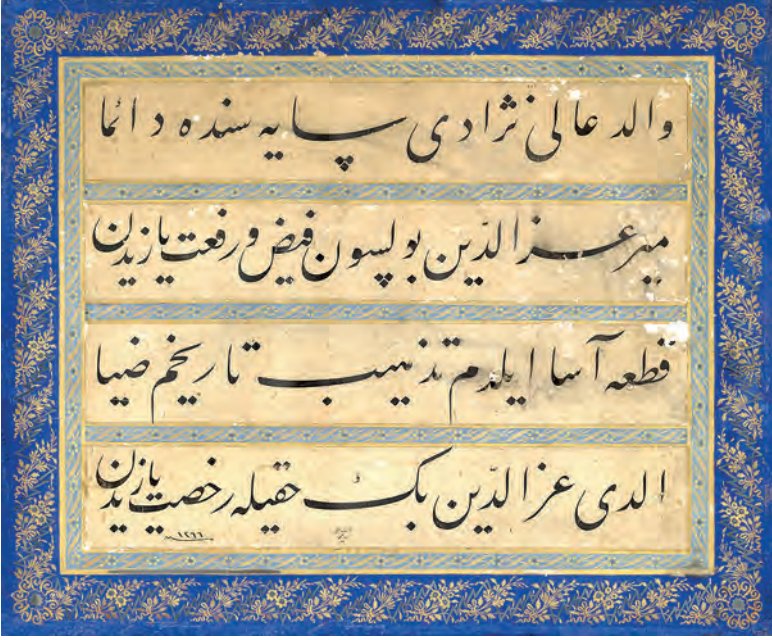 والد عالی نژادی سایه سنده دائما
میر عزالدّین بولسون فیض و رفعت یازیدن
قطعه آسا ایلدم تذهیب تاریخم ضیا
الدی عزالدّین بک حقیله رخصت یازیدن
١٢٦٦